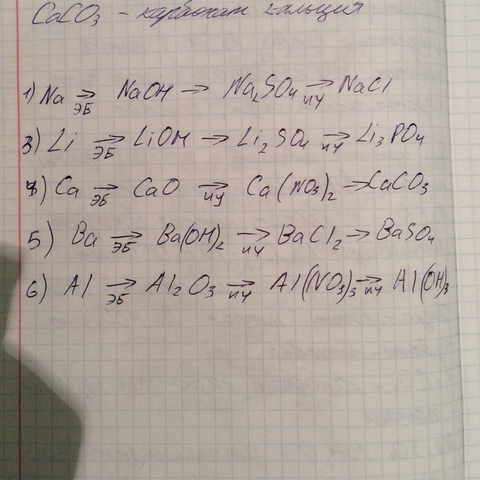 CaCO₃ - карбонат кальция
1) Na →ЭБ NaOH → Na₂SO₄ →ИУ NaCl
3) Li →ЭБ LiOH → Li₂SO₄ →ИУ Li₃PO₄
4) Ca →ЭБ CaO →ИУ Ca(NO₃)₂ → CaCO₃
5) Ba →ЭБ Ba(OH)₂ →ИУ BaCl₂ → BaSO₄
6) Al →ЭБ Al₂O₃ →ИУ Al(NO₃)₃ →ИУ Al(OH)₃